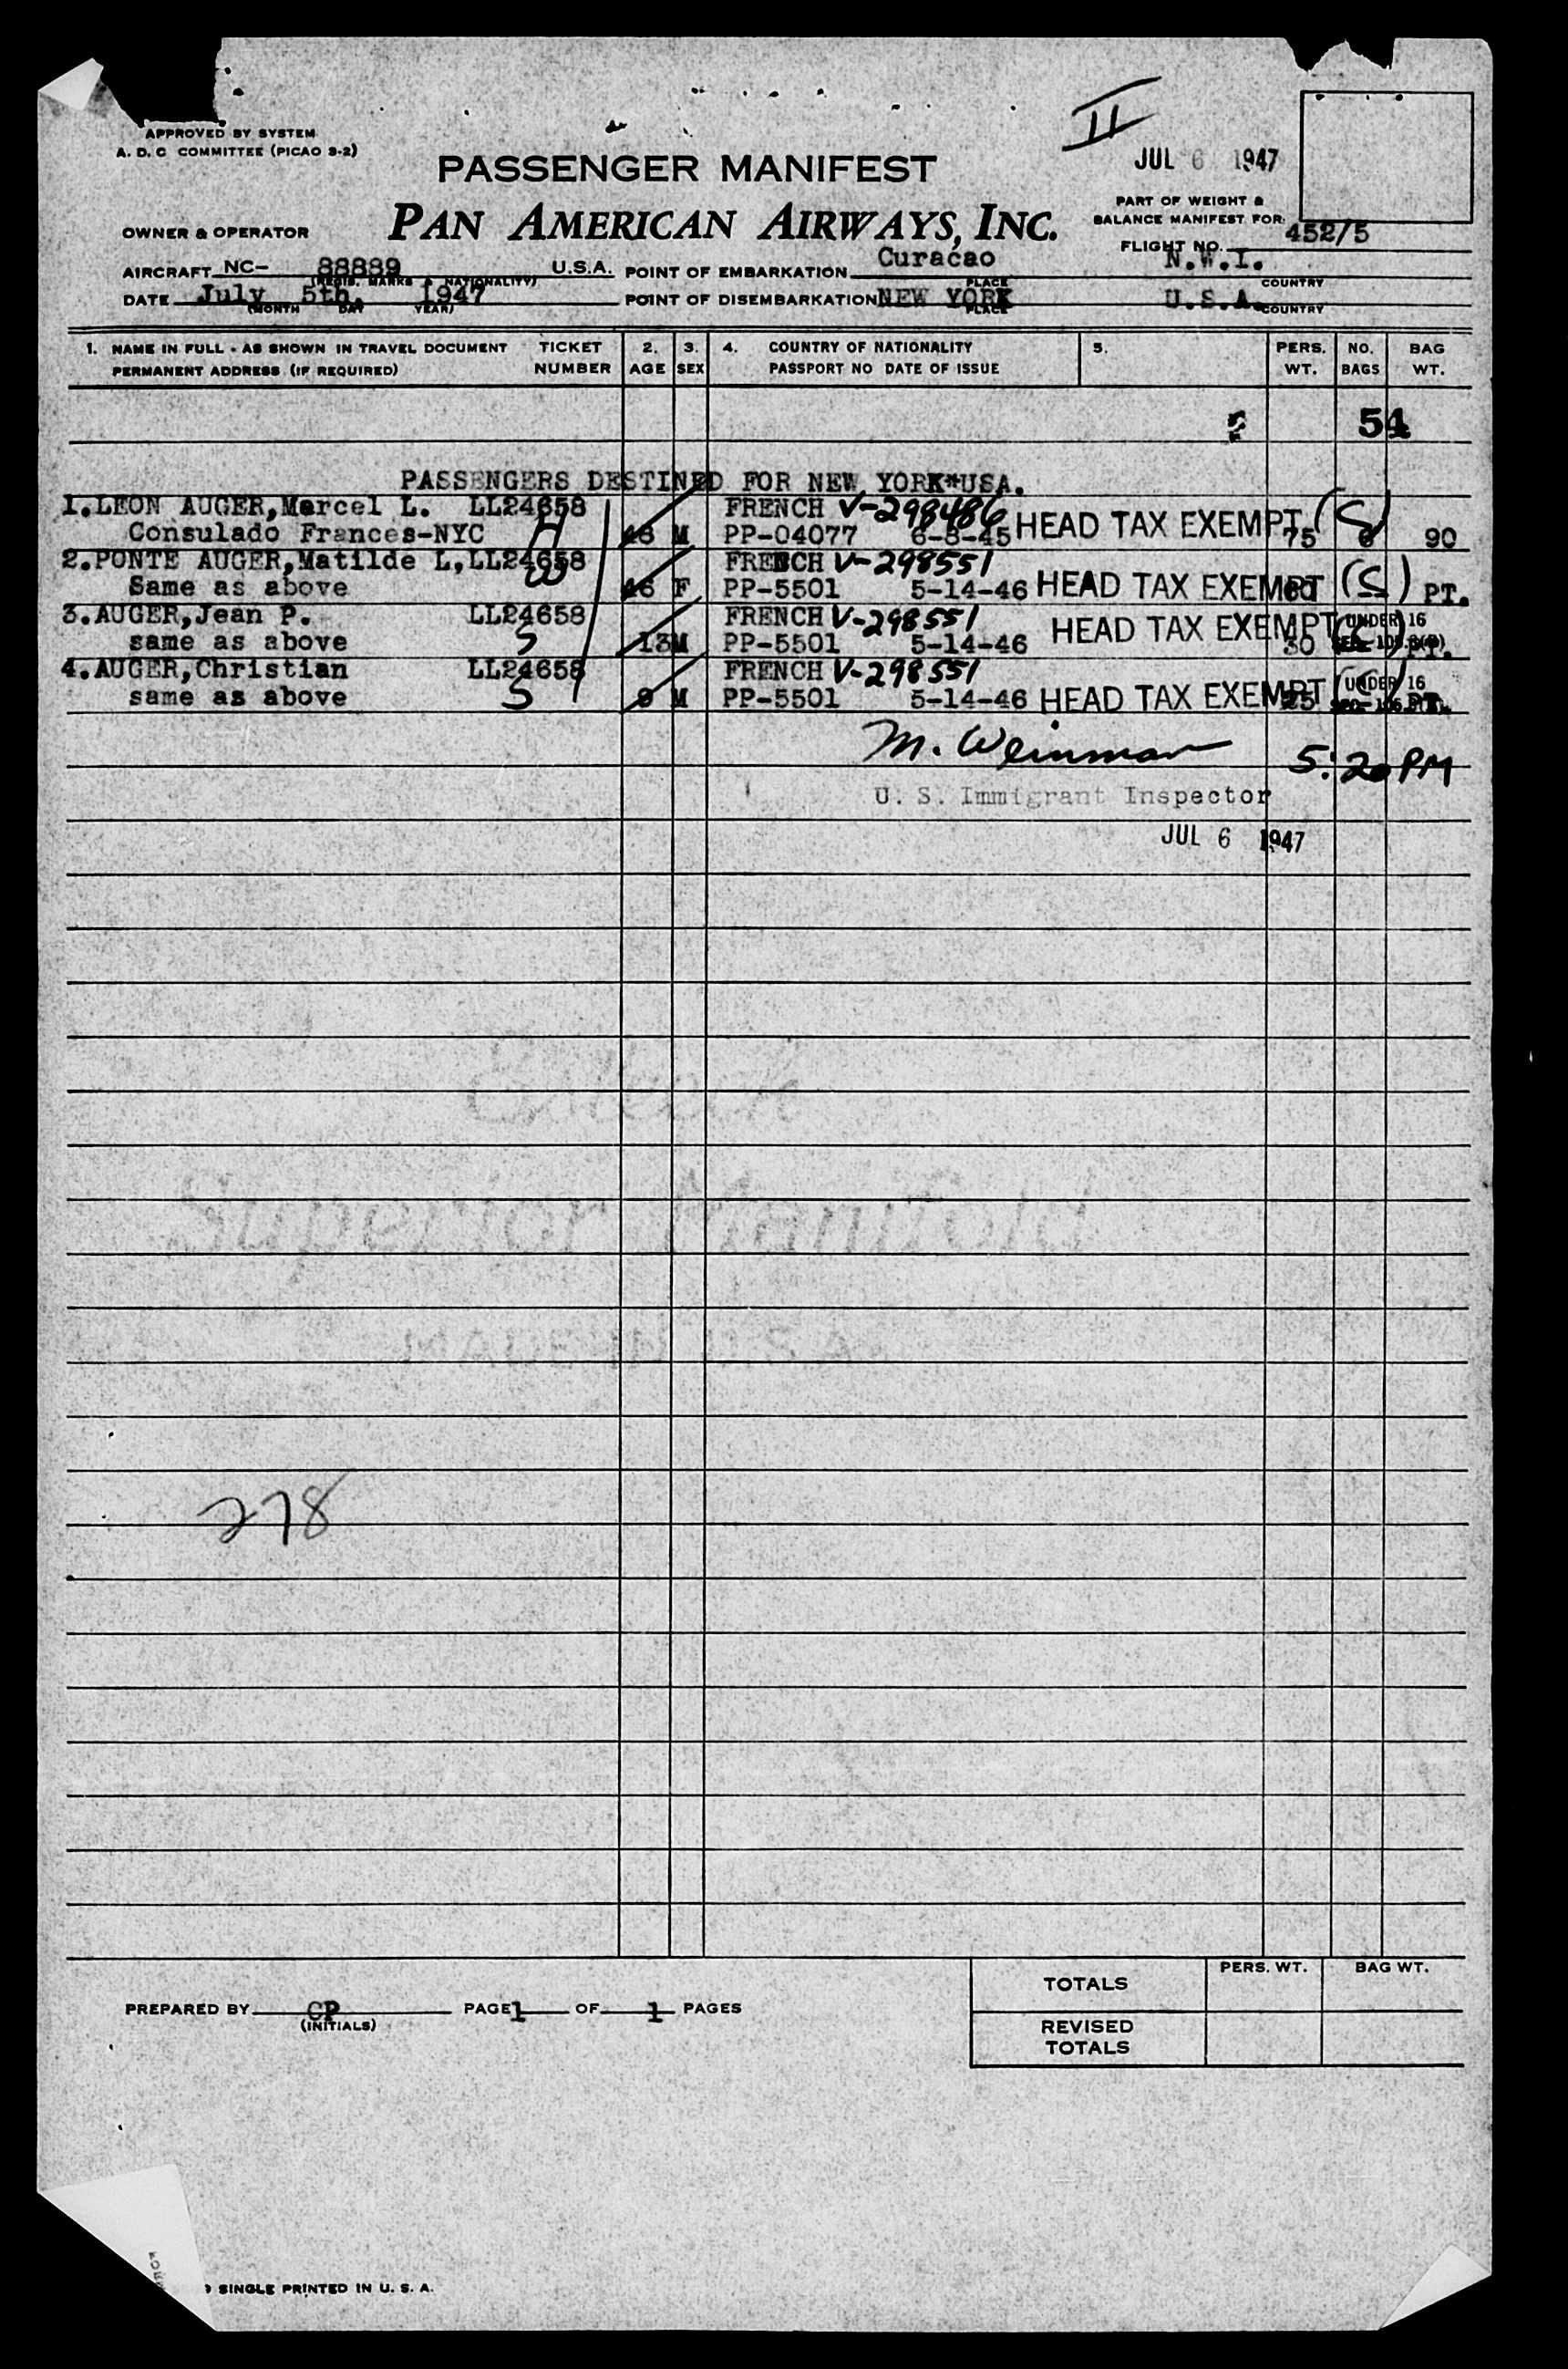 II
JUL 6 1947
APPROVED BY SYSTEM
A. D. C COMMITTEE (PICAO 3-2)
PASSENGER MANIFEST
PAN AMERICAN AIRWAYS, INC.
PART OF WEIGHT &
BALANCE MANIFEST FOR:
FLIGHT NO. 452/5
OWNER & OPERATOR
AIRCRAFT NC- 88889 U.S.A. POINT OF EMBARKATION Curacao N.W.I.
(REGIS. MARKS & NATIONALITY) PLACE COUNTRY
DATE July 5th, 1947 POINT OF DISEMBARKATION NEW YORK U.S.A.
(MONTH DAY YEAR) PLACE COUNTRY
1. NAME IN FULL - AS SHOWN IN TRAVEL DOCUMENT TICKET 2. 3. 4. COUNTRY OF NATIONALITY 5. PERS. NO. BAG
PERMANENT ADDRESS (IF REQUIRED) NUMBER AGE SEX PASSPORT NO DATE OF ISSUE WT. BAGS WT.
54
PASSENGERS DESTINED FOR NEW YORK*USA.
1.LEON AUGER,Marcel L. LL24658 FRENCH V-298486 HEAD TAX EXEMPT (S)
Consulado Frances-NYC H M PP-04077 6-8-45 75 90
2.PONTE AUGER,Matilde L, LL24658 FRENCH V-298551
Same as above W 46 F PP-5501 5-14-46 HEAD TAX EXEMPT (S) PT.
3.AUGER,Jean P. LL24658 FRENCH V-298551 HEAD TAX EXEMPT UNDER 16
same as above S 13 M PP-5501 5-14-46 30 PT.
4.AUGER,Christian LL24658 FRENCH V-298551 UNDER 16
same as above S 9 M PP-5501 5-14-46 HEAD TAX EXEMPT 25 PT.
M. Weinman 5:20 PM
U. S. Immigrant Inspector
JUL 6 1947
278
TOTALS PERS. WT. BAG WT.
PREPARED BY CP PAGE 1 OF 1 PAGES
(INITIALS)
REVISED
TOTALS
SINGLE PRINTED IN U. S. A.